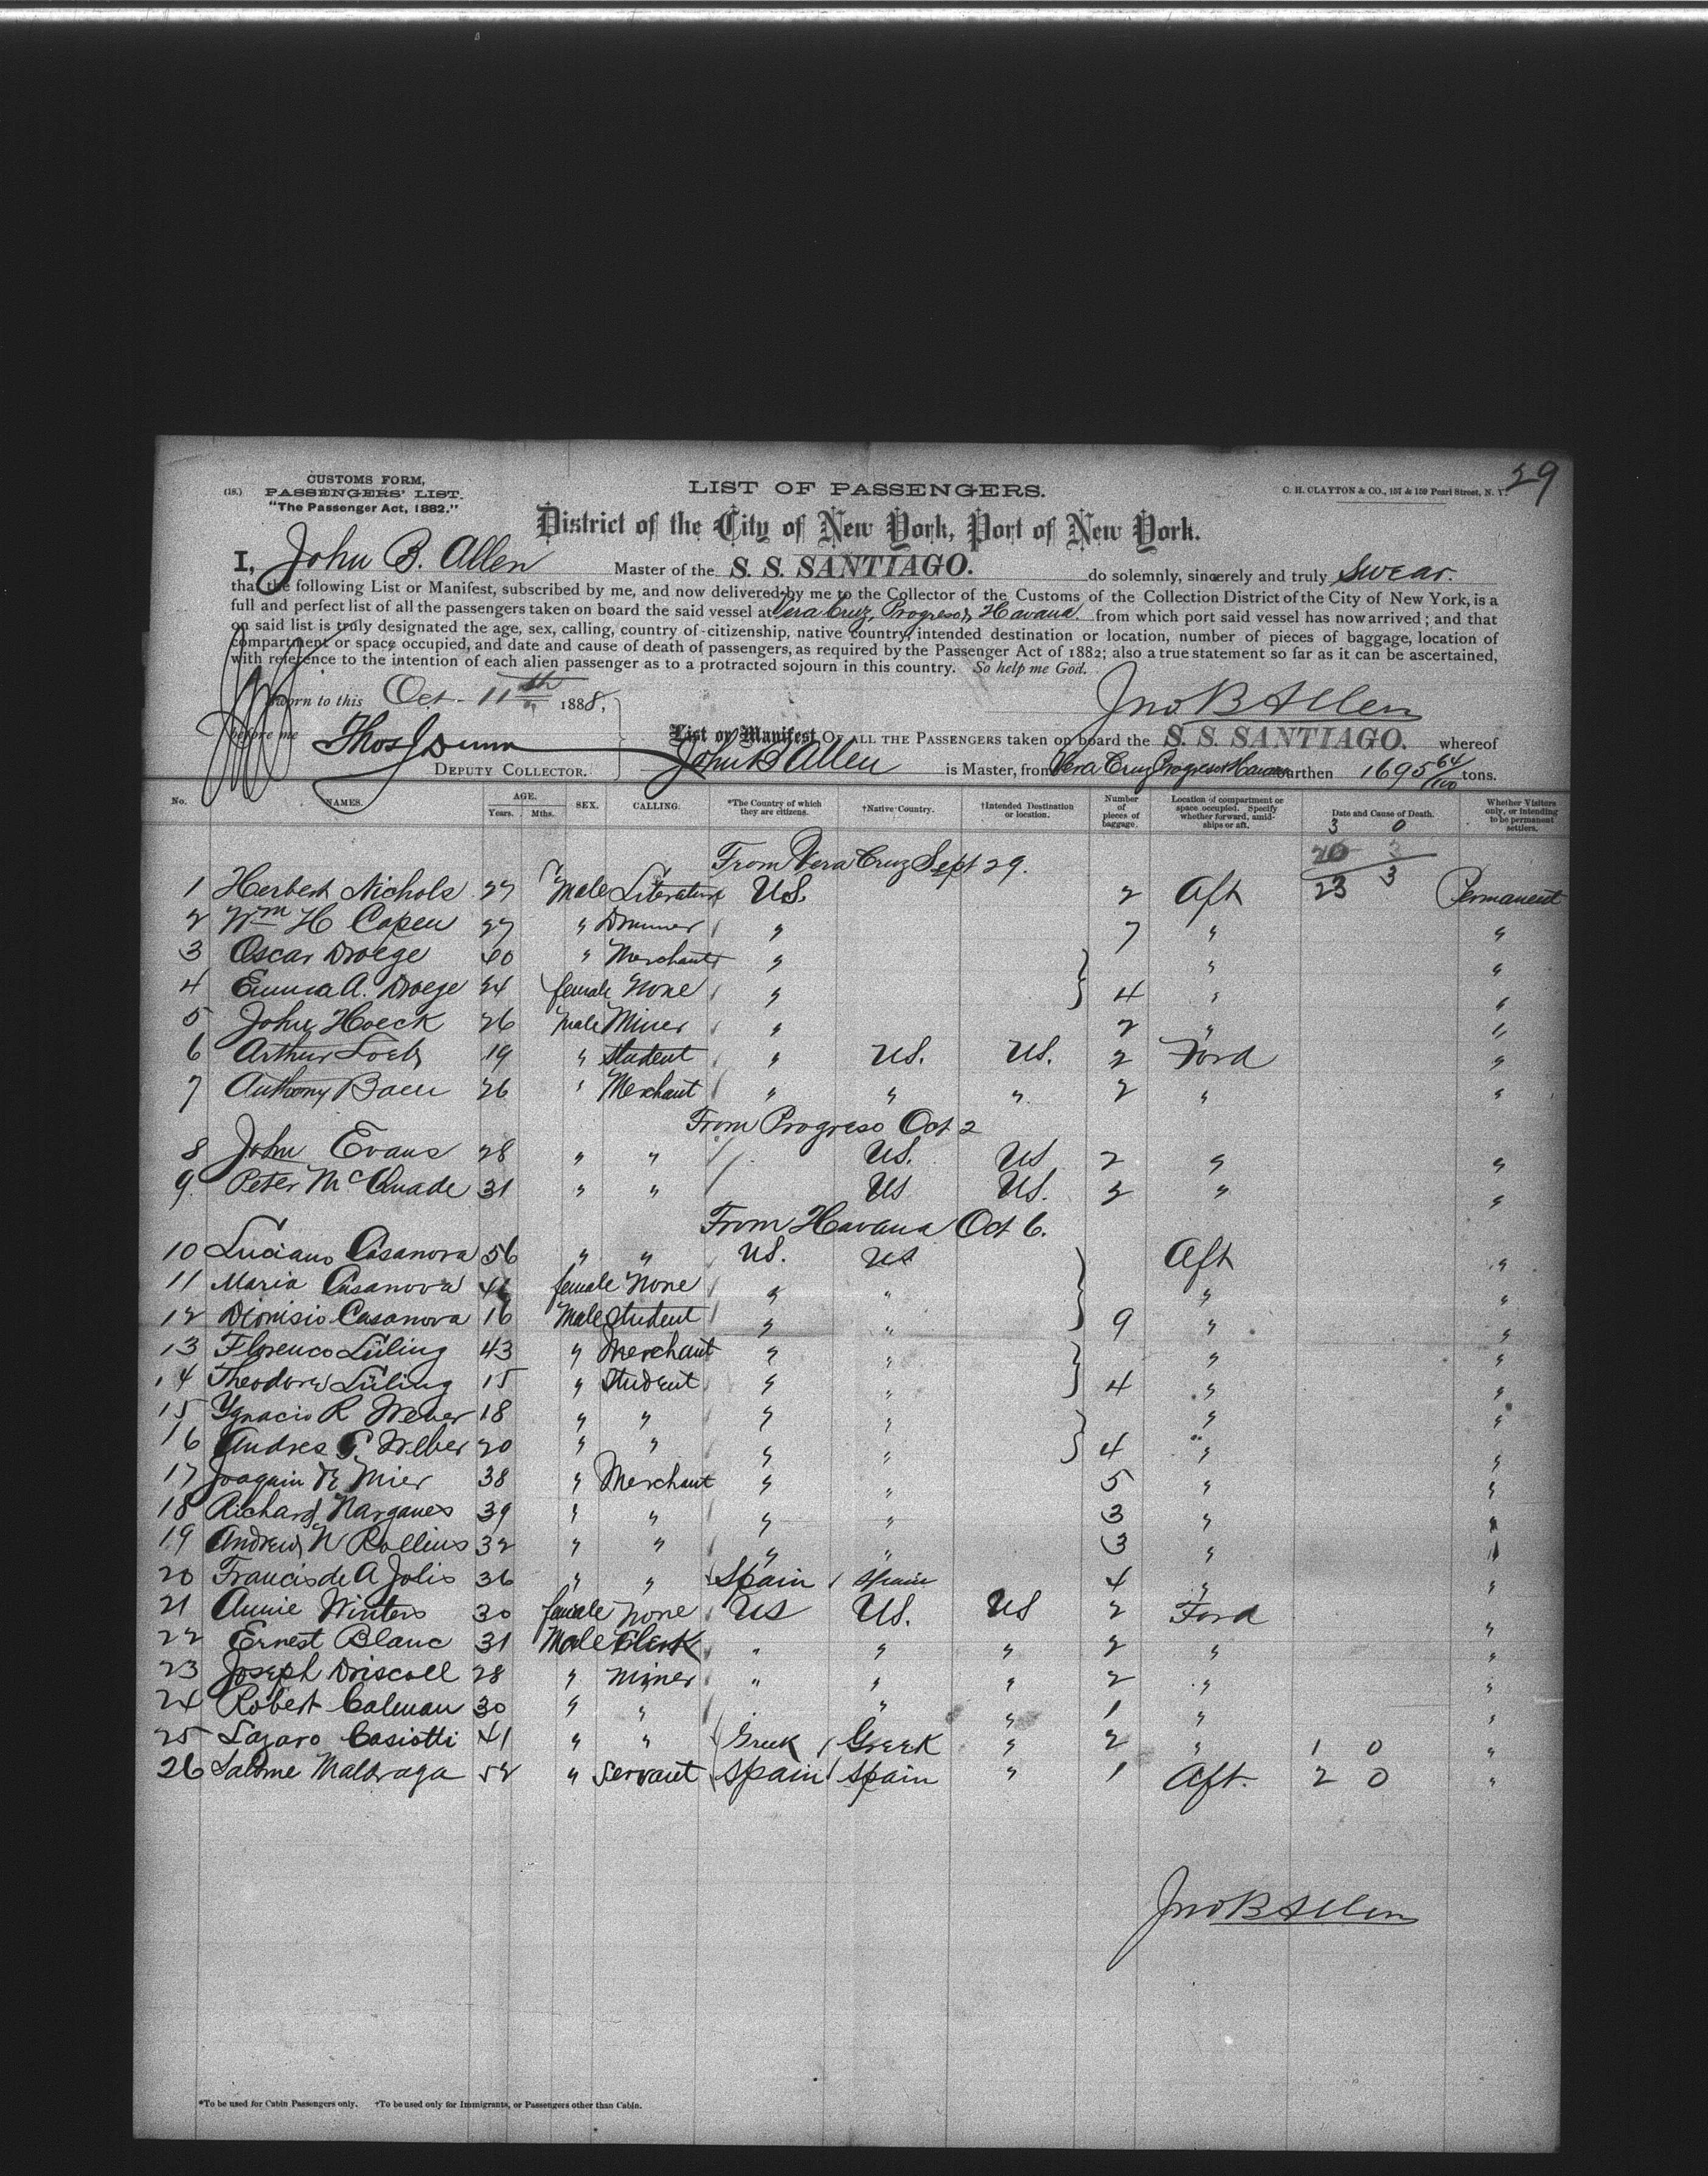 29
CUSTOMS FORM,
(18.) PASSENGERS' LIST.
"The Passenger Act, 1882."
LIST OF PASSENGERS.
C. H. CLAYTON & CO., 157 & 159 Pearl Street, N. Y.
District of the City of New York, Port of New York.
I, John B. Allen Master of the S. S. SANTIAGO. do solemnly, sincerely and truly swear.
that the following List or Manifest, subscribed by me, and now delivered by me to the Collector of the Customs of the Collection District of the City of New York, is a
full and perfect list of all the passengers taken on board the said vessel at Vera Cruz, Progreso, Havana from which port said vessel has now arrived; and that
on said list is truly designated the age, sex, calling, country of citizenship, native country, intended destination or location, number of pieces of baggage, location of
compartment or space occupied, and date and cause of death of passengers, as required by the Passenger Act of 1882; also a true statement so far as it can be ascertained,
with reference to the intention of each alien passenger as to a protracted sojourn in this country. So help me God.
Sworn to this Oct. 11th 1888,
Jno B Allen
before me Thos J Dunn
DEPUTY COLLECTOR.
List or Manifest OF ALL THE PASSENGERS taken on board the S. S. SANTIAGO. whereof
John B Allen is Master, from Vera Cruz Progreso Havana burthen 1695 64/100 tons.
No. NAMES. AGE. Years. Mths. SEX. CALLING. *The Country of which they are citizens. †Native Country. †Intended Destination or location. Number of pieces of baggage. Location of compartment or space occupied. Specify whether forward, amidships or aft. Date and Cause of Death. Whether Visitors only, or intending to be permanent settlers.
3 0
20 3
23 3
From Vera Cruz Sept 29.
1 Herbert Nichols 27 Male Literature US. 2 Aft Permanent
2 Wm H Capen 27 " Drummer " 7 " "
3 Oscar Droege 40 " Merchant " " "
4 Emma A. Droege 24 female None " 4 " "
5 John Hoeck 26 Male Miner " 2 " "
6 Arthur Loeb 19 " Student " US. US. 2 Ford "
7 Anthony Baeu 26 " Merchant " " " 2 " "
From Progreso Oct 2
8 John Evans 28 " " US. US 2 " "
9 Peter McQuade 31 " " US US. 2 " "
From Havana Oct 6.
10 Luciano Casanova 56 " " US. US Aft "
11 Maria Casanova female None " " " "
12 Dionisio Casanova 16 Male Student " " 9 " "
13 Florenco Lüling 43 " Merchant " " " "
14 Theodore Lüling 15 " Student " " 4 " "
15 Ygnacio R Weber 18 " " " " " "
16 Andres G Weber 20 " " " " 4 " "
17 Joaquin de Mier 38 " Merchant " " 5 " "
18 Richard Narganes 39 " " " " 3 " "
19 Andrew N Rollins 32 " " " " 3 "
20 Francis de A Jolis 36 " " Spain Spain 4 " "
21 Annie Winters 30 female None US US. US 2 Ford "
22 Ernest Blanc 31 Male Clerk " " " 2 " "
23 Joseph Driscoll 28 " Miner " " " 2 " "
24 Robert Calman 30 " " " " 1 " "
25 Lazaro Casiotti 41 " " Greek Greek " 2 " 1 0 "
26 Salome Maldraga 52 " Servant Spain Spain " 1 Aft. 2 0 "
Jno B Allen
*To be used for Cabin Passengers only. †To be used only for Immigrants, or Passengers other than Cabin.